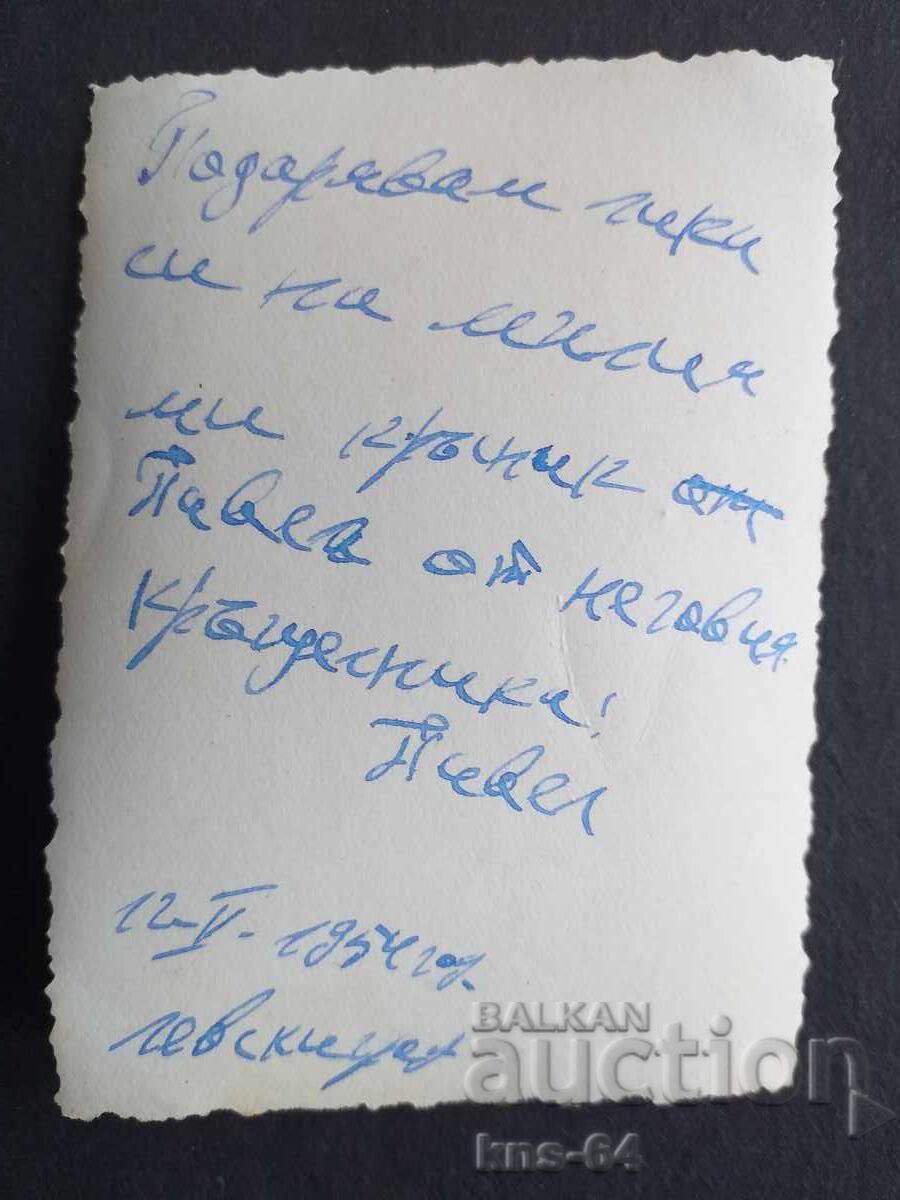 Подарявам лика
си на милия
ми кръсник от
Павел от неговия
Кръщелника!
Павел
12-V-1954 год.
BALKAN
auction
kns-64